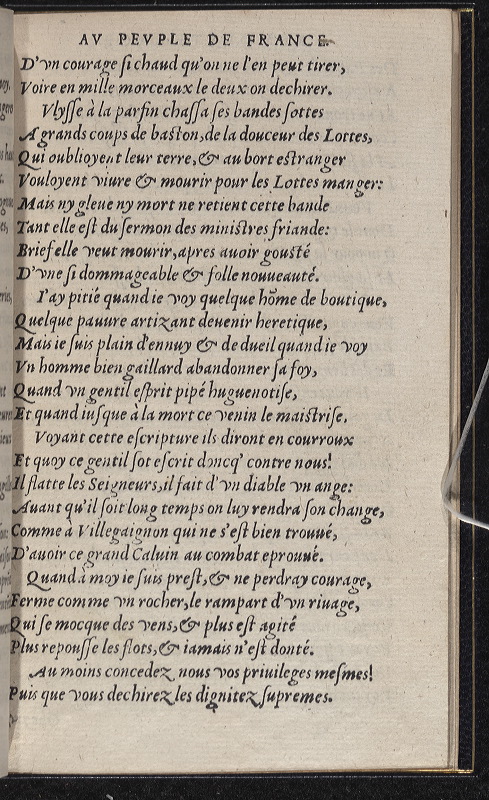 AV PEVPLE DE FRANCE.
D'vn courage si chaud qu'on ne l'en peut tirer,
Voire en mille morceaux le deux on dechirer.
Vlysse à la parfin chassa ses bandes sottes
A grands coups de baston, de la douceur des Lottes,
Qui oublioyent leur terre, & au bort estranger
Vouloyent viure & mourir pour les Lottes manger:
Mais ny gleue ny mort ne retient cette bande
Tant elle est du sermon des ministres friande:
Brief elle veut mourir, apres auoir gousté
D'vne si dommageable & folle nouueauté.
I'ay pitié quand ie voy quelque hõme de boutique,
Quelque pauure artizant deuenir heretique,
Mais ie suis plain d'ennuy & de dueil quand ie voy
Vn homme bien gaillard abandonner sa foy,
Quand vn gentil esprit pipé huguenotise,
Et quand iusque à la mort ce venin le maistrise.
Voyant cette escripture ils diront en courroux
Et quoy ce gentil sot escrit doncq' contre nous!
Il flatte les Seigneurs, il fait d'vn diable vn ange:
Auant qu'il soit long temps on luy rendra son change,
Comme à Villegaignon qui ne s'est bien trouué,
D'auoir ce grand Caluin au combat eprouué.
Quand à moy ie suis prest, & ne perdray courage,
Ferme comme vn rocher, le rampart d'vn riuage,
Qui se mocque des vens, & plus est agité
Plus repousse les flots, & iamais n'est donté.
Au moins concedez nous vos priuileges mesmes!
Puis que vous dechirez les dignitez supremes.